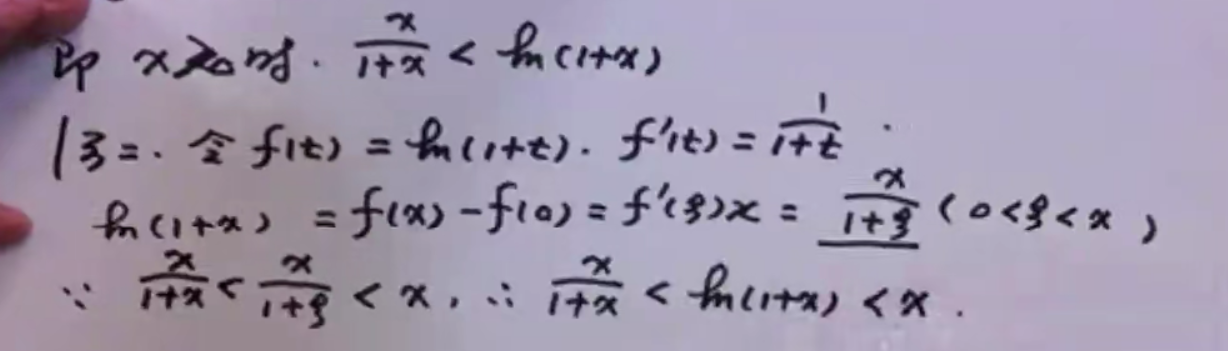 即 x>0时. x/(1+x) < ln(1+x)
法二. 令 f(t) = ln(1+t). f'(t) = 1/(1+t).
ln(1+x) = f(x) - f(0) = f'(ξ)x = x/(1+ξ) (0<ξ<x)
∵ x/(1+x) < x/(1+ξ) < x, ∴ x/(1+x) < ln(1+x) < x.